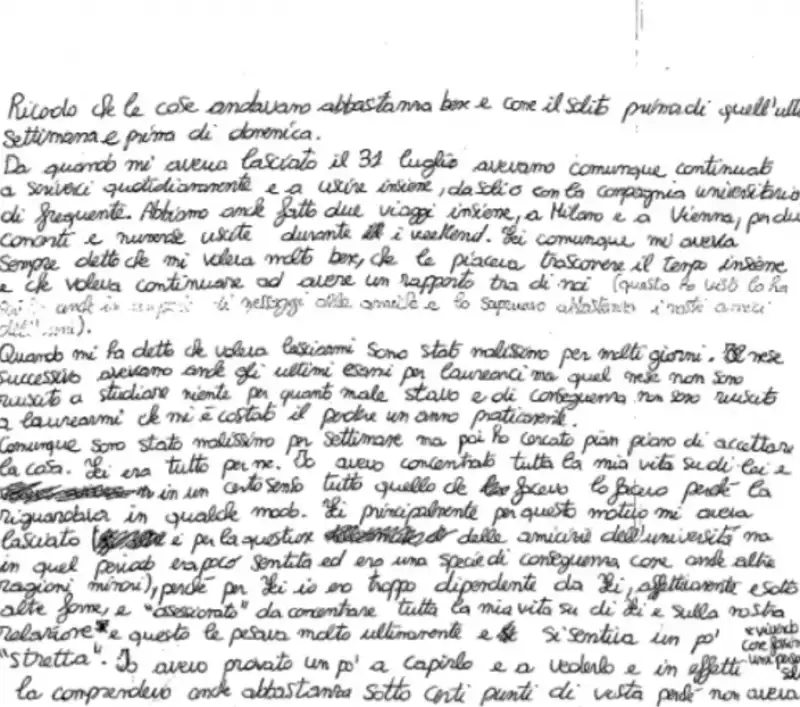 Ricodo che le cose andavano abbastanza bene e come il solito prima di quell'ulti
settimana e prima di domenica.
Da quando mi aveva lasciato il 31 luglio avevamo comunque continuato
a scriverci quotidianamente e a uscire insieme, da soli o con la compagnia universitaria
di frequente. Abbiamo anche fatto due viaggi insieme, a Milano e a Vienna, per due
concerti e numerose uscite durante i weekend. Lei comunque mi aveva
sempre detto che mi voleva molto bene, che le piaceva trascorrere il tempo insieme
e che voleva continuare ad avere un rapporto tra di noi (questo ho visto lo ha
anche in di messaggi alle amiche e lo sapevano abbastanza i nostri amici
).
Quando mi ha detto che voleva lasciarmi sono stato malissimo per molti giorni. Il mese
successivo avevamo anche gli ultimi esami per laurearci ma quel mese non sono
riuscito a studiare niente per quanto male stavo e di conseguenza non sono riuscito
a laurearmi che mi è costato il perdere un anno praticamente.
Comunque sono stato malissimo per settimane ma poi ho cercato pian piano di accettare
la cosa. Lei era tutto per me. Io avevo concentrato tutta la mia vita su di lei e
in un certo senso tutto quello che facevo lo facevo perché la
riguardava in qualche modo. Lei principalmente per questo motivo mi aveva
lasciato ( e per la questione delle amicizie dell'università ma
in quel periodo era poco sentita ed era una specie di conseguenza come anche altre
ragioni minori), perché per Lei io ero troppo dipendente da Lei, affettivamente e sotto
altre forme, e "ossessionato" da concentrare tutta la mia vita su di Lei e sulla nostra
relazione e questo le pesava molto ultimamente e si sentiva un po'
"stretta". Io avevo provato un po' a capirlo e a vederlo e in effetti
la comprendevo anche abbastanza sotto certi punti di vista perché non aveva